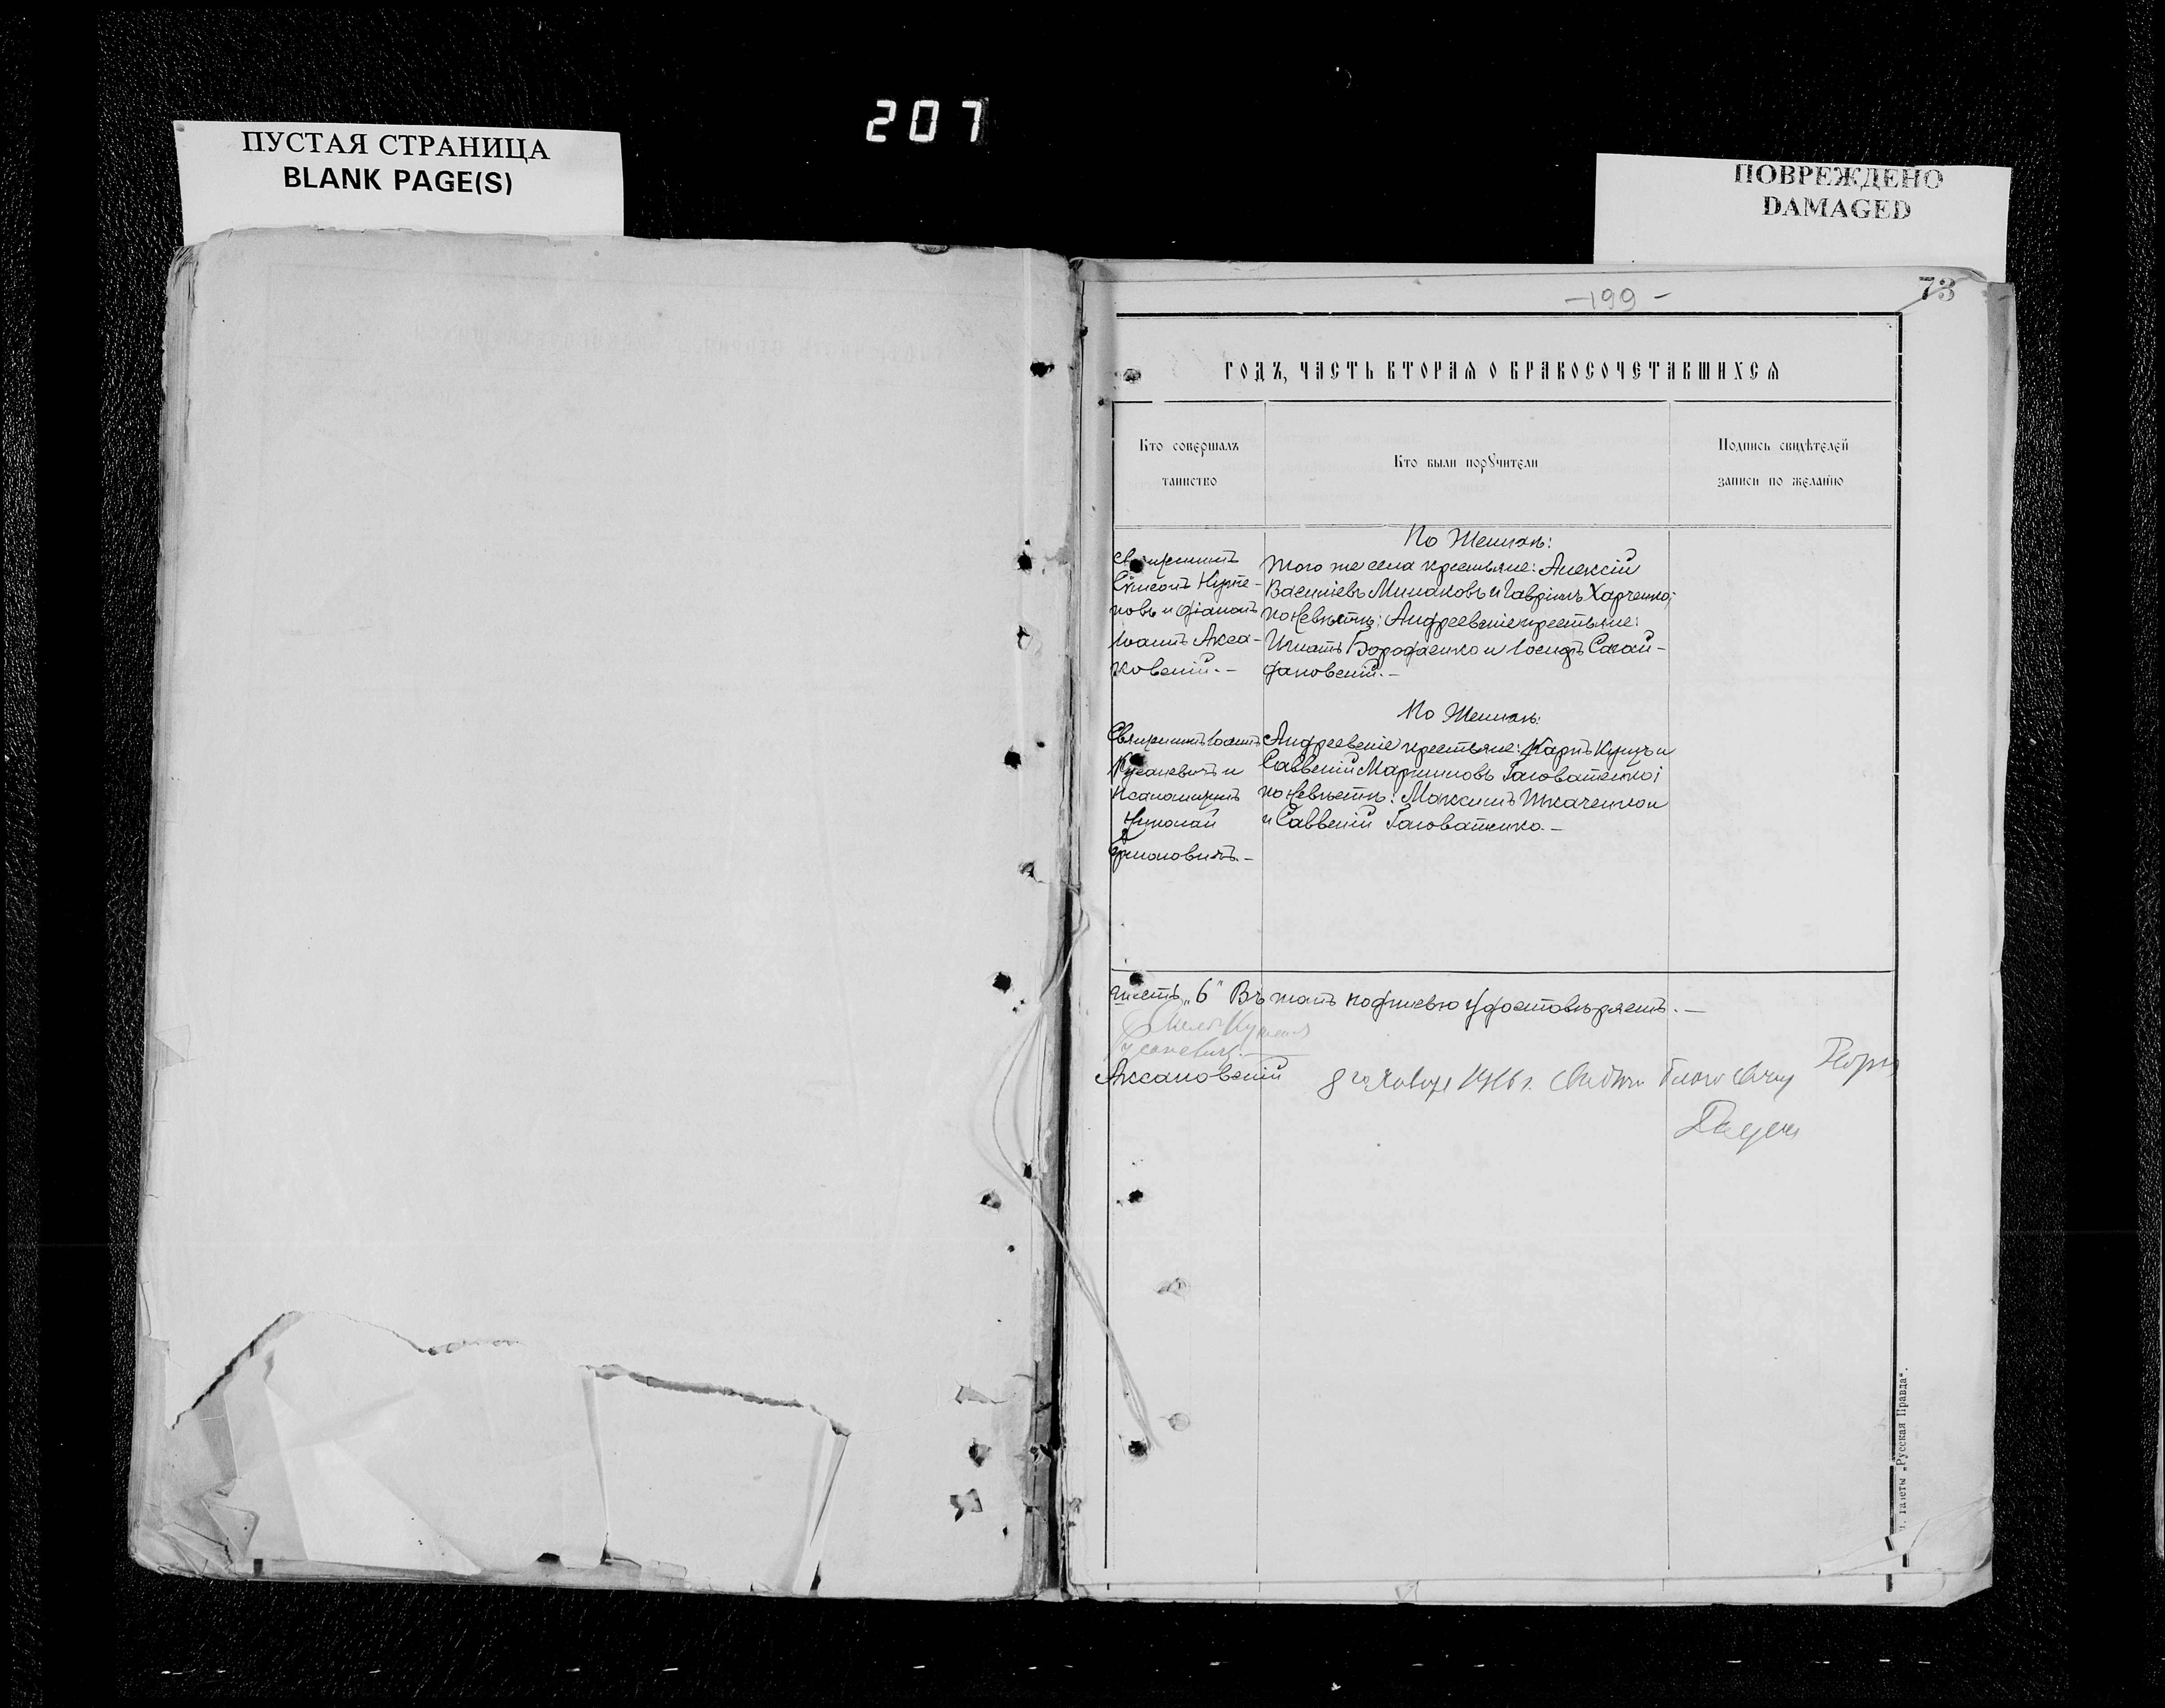 ПУСТАЯ СТРАНИЦА
BLANK PAGE(S)
207
ПОВРЕЖДЕНО
DAMAGED
-199-
73
годъ, часть вторая о бракосочетавшихся
Кто совершалъ
таинство
Кто были поручители
Подпись свидѣтелей
записи по желанію
Священникъ
Симеонъ
и діаконъ
Іоаннъ Акса-
ковскій.-
По Женихѣ:
того же села крестьяне: Алексій
Васильевъ Минаковъ и Гавріилъ Харченко;
по Невѣстѣ: Андреевскіе крестьяне:
Игнатъ Бородаенко и Іосифъ Сагай-
даковскій.-
Священникъ Іоаннъ
Русаневичъ и
псаломщикъ
Николай
По Женихѣ:
Андреевскіе крестьяне: Карпъ Куцъ и
Савелій Мартиновъ Головатенко;
по Невѣстѣ: Максимъ Ткаченко и
и Савелій Головатенко.-
шесть „6" Въ томъ подписью удостовѣряемъ.-
Русаневичъ
Аксаковскій
8 го Января 1916 г.
п. газеты „Русская Правда".